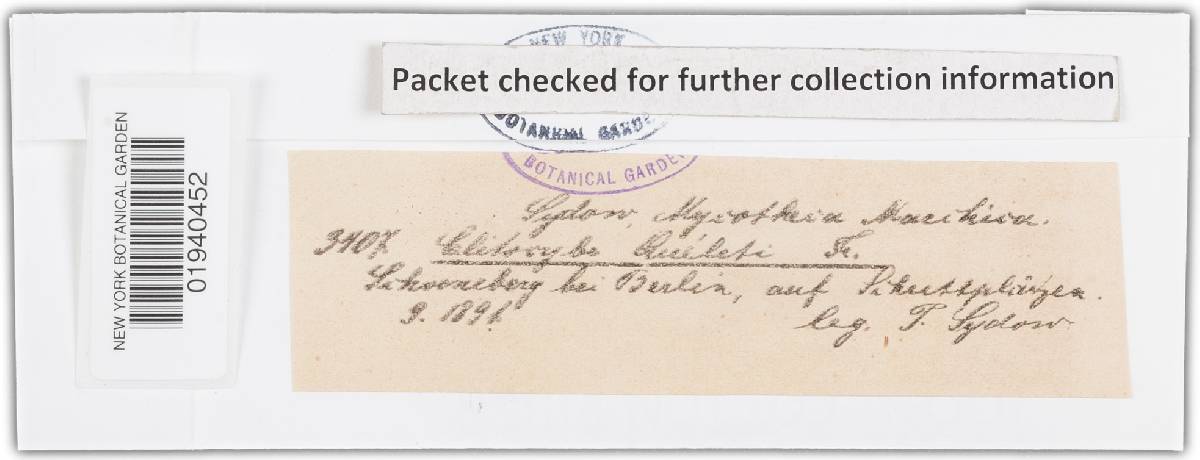 NEW YORK
Packet checked for further collection information
BOTANICAL GARDEN
BOTANICAL GARDEN
NEW YORK BOTANICAL GARDEN
01940452
Sydow, Mycotheca Marchica.
3107. Clitocybe Quéleti Fr.
Schoeneberg bei Berlin, auf Schuttplätzen.
9. 1891. leg. P. Sydow.